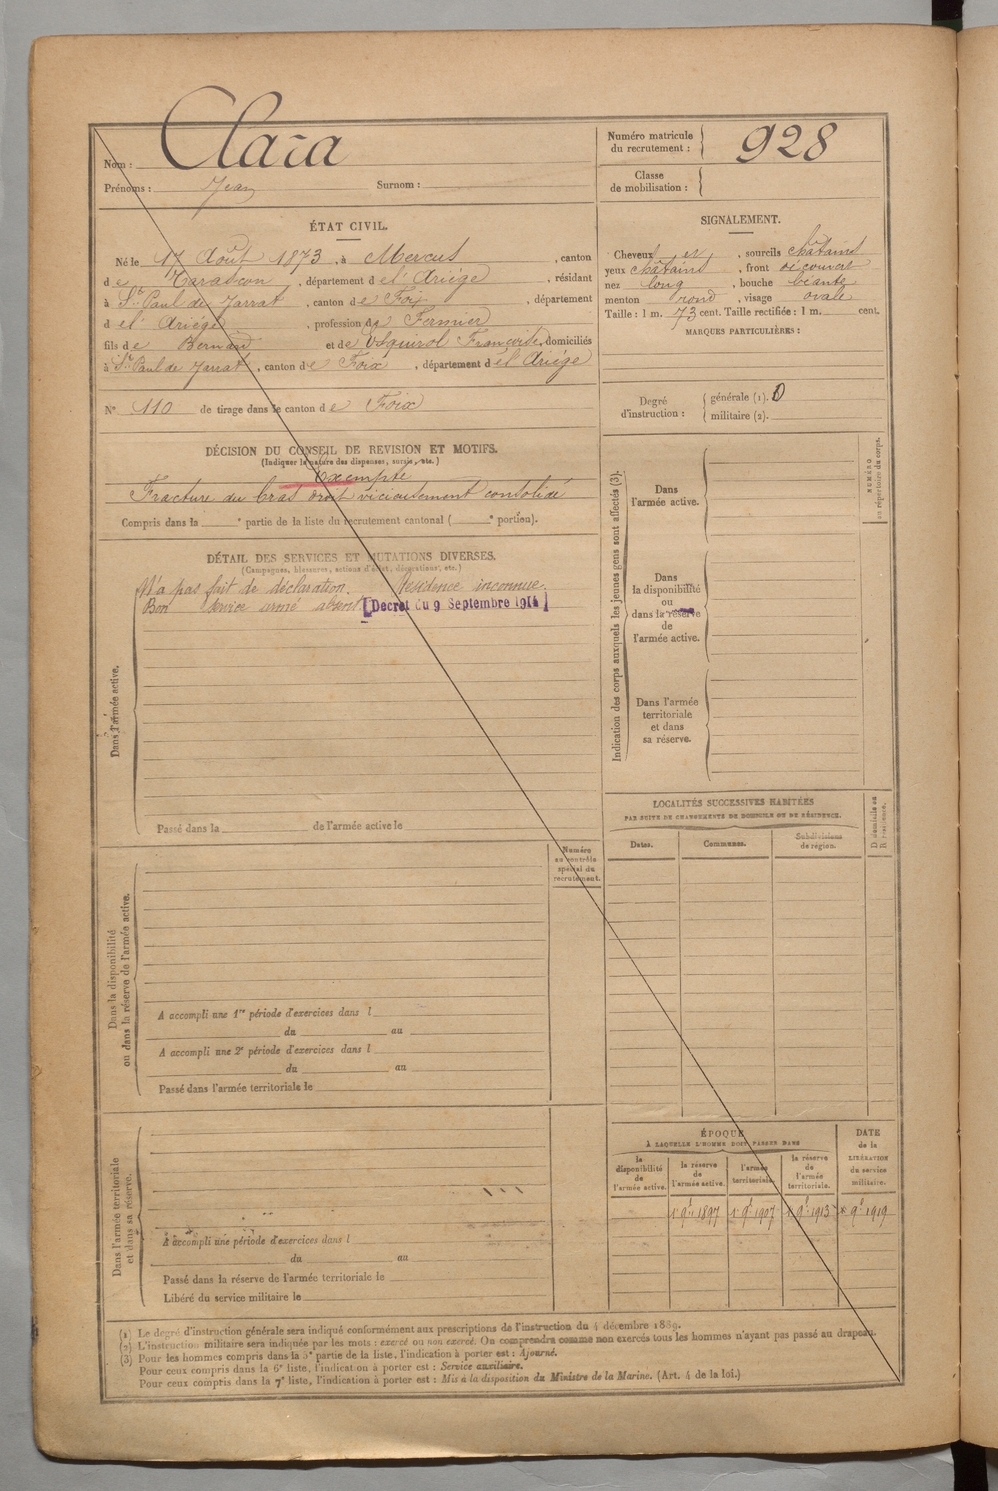 Nom : Clara
Prénoms : Jean Surnom :
Numéro matricule du recrutement : 928
Classe de mobilisation :
ÉTAT CIVIL.
Né le 17 Août 1873, à Mercus, canton
de Tarascon, département de l'Ariège, résidant
à St Paul de Jarrat, canton de Foix, département
de l'Ariège, profession de Fermier
fils de Bernard et de Esquirol Françoise, domiciliés
à St Paul de Jarrat, canton de Foix, département de l'Ariège
N° 110 de tirage dans le canton de Foix
SIGNALEMENT.
Cheveux et, sourcils châtains
yeux châtains, front découvert
nez long, bouche béante
menton rond, visage ovale
Taille : 1 m. 73 cent. Taille rectifiée : 1 m. cent.
MARQUES PARTICULIÈRES :
Degré d'instruction : générale (1). 0
militaire (2).
DÉCISION DU CONSEIL DE REVISION ET MOTIFS.
(Indiquer la nature des dispenses, sursis, etc.)
Exempté
Fracture du bras droit vicieusement consolidé
Compris dans la e partie de la liste du recrutement cantonal ( e portion).
DÉTAIL DES SERVICES ET MUTATIONS DIVERSES.
(Campagnes, blessures, actions d'éclat, décorations, etc.)
N'a pas fait de déclaration. Résidence inconnue.
Bon service armé absent [Decret du 9 Septembre 1914]
Dans l'armée active.
Passé dans la de l'armée active le
Indication des corps auxquels les jeunes gens sont affectés (3).
Dans l'armée active.
Dans la disponibilité
ou
dans la réserve
de
l'armée active.
Dans l'armée
territoriale
et dans
sa réserve.
NUMÉRO
au répertoire du corps.
LOCALITÉS SUCCESSIVES HABITÉES
PAR SUITE DE CHANGEMENTS DE DOMICILE OU DE RÉSIDENCE.
Dates. Communes. Subdivisions de région.
D. domicile ou
R. résidence.
Numéro
au contrôle
spécial du
recrutement.
Dans la disponibilité
ou dans la réserve de l'armée active.
A accompli une 1re période d'exercices dans l
du au
A accompli une 2e période d'exercices dans l
du au
Passé dans l'armée territoriale le
Dans l'armée territoriale
et dans sa réserve.
A accompli une période d'exercices dans l
du au
Passé dans la réserve de l'armée territoriale le
Libéré du service militaire le
ÉPOQUE
À LAQUELLE L'HOMME DOIT PASSER DANS
la disponibilité de l'armée active.
la réserve de l'armée active.
l'armée territoriale.
la réserve de l'armée territoriale.
DATE de la LIBÉRATION du service militaire.
1er 9bre 1897 1er 9bre 1907 1er 9bre 1913 1er 9bre 1919
(1) Le degré d'instruction générale sera indiqué conformément aux prescriptions de l'instruction du 4 décembre 1889.
(2) L'instruction militaire sera indiquée par les mots : exercé ou non exercé. On comprendra comme non exercés tous les hommes n'ayant pas passé au drapeau.
(3) Pour les hommes compris dans la 5e partie de la liste, l'indication à porter est : Ajourné.
Pour ceux compris dans la 6e liste, l'indication à porter est : Service auxiliaire.
Pour ceux compris dans la 7e liste, l'indication à porter est : Mis à la disposition du Ministre de la Marine. (Art. 4 de la loi.)